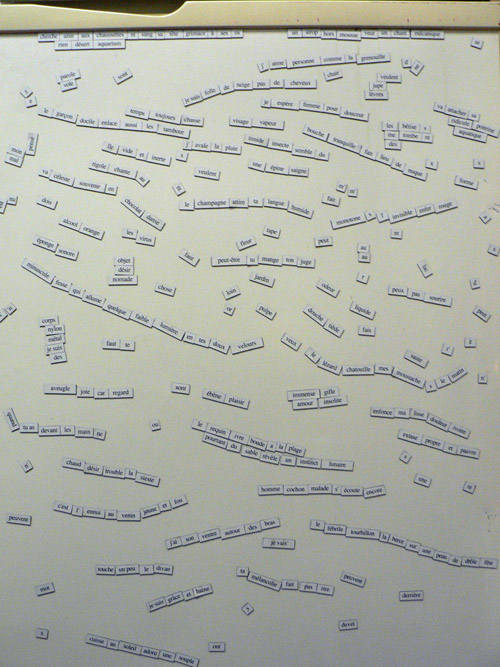 cherche
chaussettes et sang sa tête grimace à ses os
un sirop hors mousse veut un chant mécanique
rien désert aquarium
j' aime personne comme la grenouille
parole
voie
sont
chair
veulent
jupe
lèvres
je suis folle de neige pas de cheveux
je espère femme pour douceur
le garçon docile enlace aussi les tambour
temps toujours chasse
visage vapeur
les bêtise s
me tombe nt
des
va attacher sa
ridicule poitrine
aquatique
bouche tranquille fait lieu de nuque
île vide et inerte s
j' avale la pluie
timide insecte semble du
rigole chante au
une épine saigne
veulent
va céleste souvenir en
forme
mon
mal
dois
chocolat danse
le champagne attire ta langue humide
fait
monotone s invisible enfer rouge
alcool orange
les virus
tape
fleur
peut
éponge sonore
peut-être tu mange ton juge
objet
désir
nomade
au
au
minuscule fesse qui allume quelque faible lumière en tes doux velours
chose
jardin
loin
odeur
peux pas sourire
or
pulpe
douche tiède
liquide
fais
corps
nylon
métal
je suis
des
faut te
veux le lézard chatouille mes moustache s le matin
saute
aveugle joie car regard
sont
ébène plaisir
immense gifle
amour insolite
enfonce ma lisse douleur ivoire
tu as devant les main ne
ou
le requin ivre boude à la plage
pourtant du sable révèle un instinct lunaire
extase propre et pauvre
chaud désir trouble la sieste
une
homme cochon malade s' écoute encore
c'est l' ennui au venin jeune et fou
peuvent
j'ai son ventre autour des bras
je vais
le fébrile tourbillon la berce sur une peau de drôle fête
touche un peu le divan
ta mélancolie fait pas rire
peuvent
mot
je suis grâce et haine
derrière
duvet
cuisse au soleil adore une souple
ont